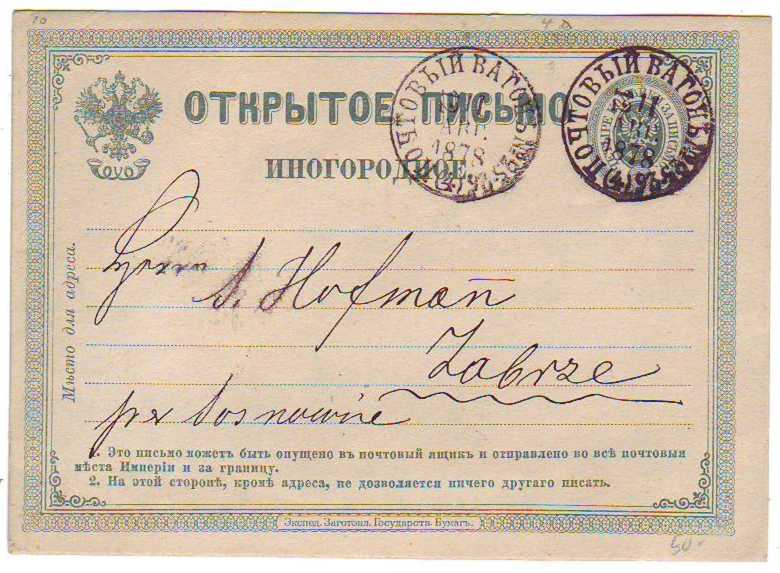 ОТКРЫТОЕ ПИСЬМО
ИНОГОРОДНОЕ
ПОЧТОВЫЙ ВАГОНЪ
11
АВГ.
1878
ПОЧТОВЫЙ ВАГОНЪ
11
АВГ.
1878
Мѣсто для адреса.
Herrn S. Hofmann
Zabrze
per Sosnowice
1. Это письмо можетъ быть опущено въ почтовый ящикъ и отправлено во всѣ почтовыя
мѣста Имперіи и за границу.
2. На этой сторонѣ, кромѣ адреса, не дозволяется ничего другаго писать.
Экспед. Заготовл. Государств. Бумагъ.
50